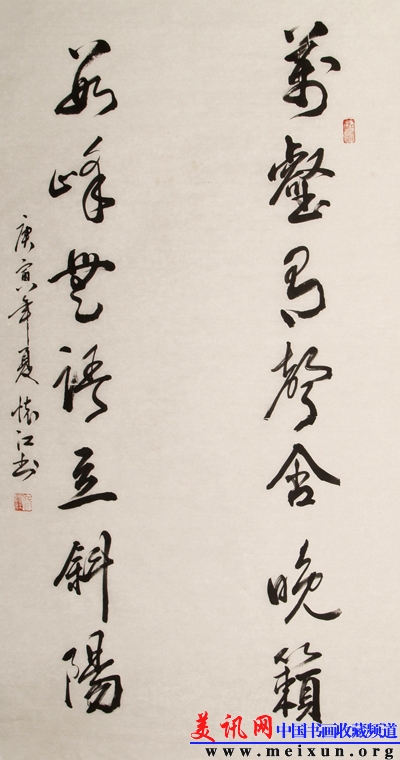 萬壑有聲含晚籟
數峰無語立斜陽
庚寅年夏懷江书
美讯网 中国书画收藏频道
www.meixun.org